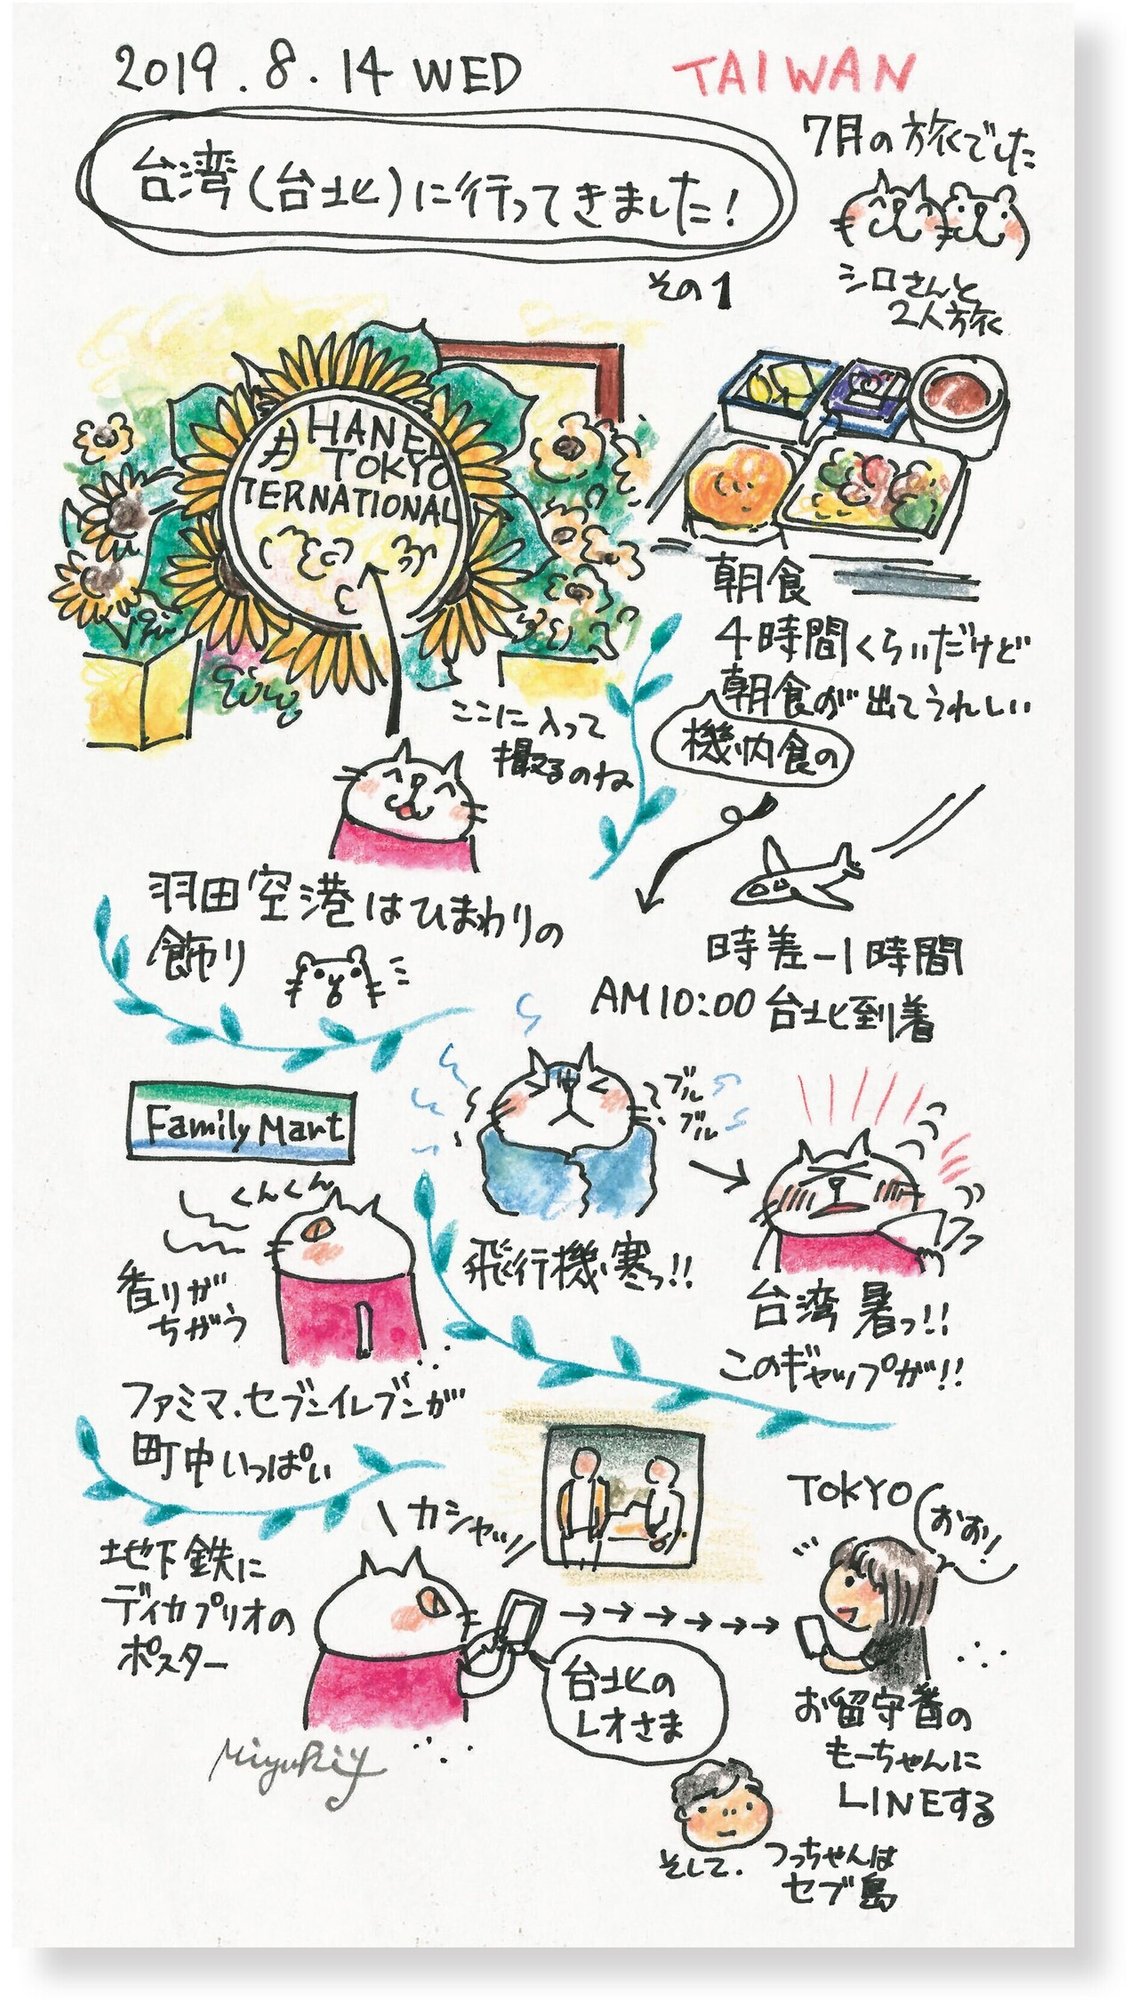 2019.8.14 WED
TAIWAN
台湾(台北)に行ってきました!
その1
7月の旅でした
シロさんと
2人旅
#HANED
TOKYO
TERNATIONAL
ここに入って
撮るのね
羽田空港はひまわりの
飾り
朝食
4時間くらいだけど
朝食が出てうれしい
機内食の
時差-1時間
AM10:00台北到着
ブル
ブル
飛行機寒っ!!
台湾暑っ!!
このギャップが!!
Family Mart
くんくん
香りが
ちがう
ファミマ、セブンイレブンが
町中いっぱい
地下鉄に
ディカプリオの
ポスター
カシャッ
台北の
レオさま
TOKYO
おお!
お留守番の
もーちゃんに
LINEする
そして、つっちゃんは
セブ島
MiyukiY